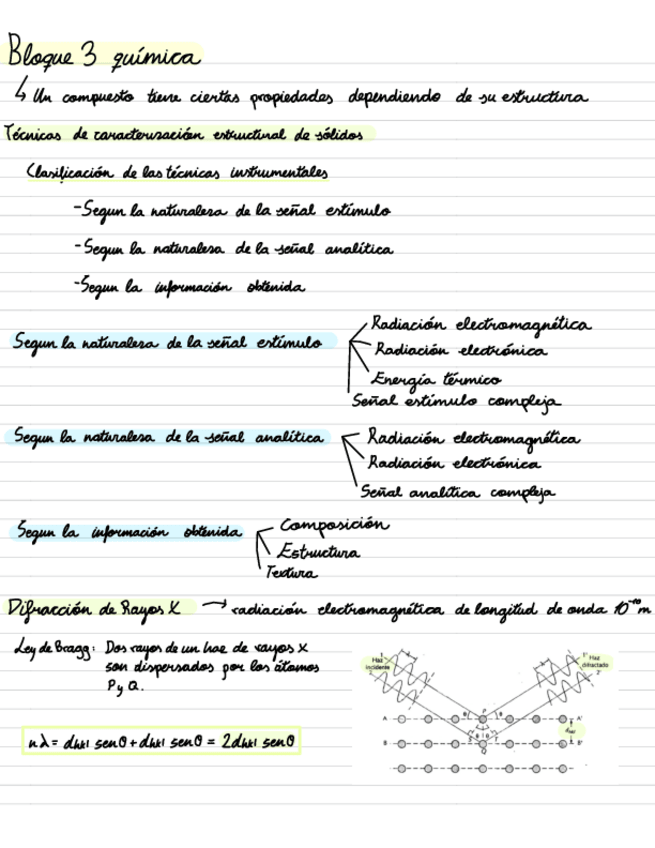 Bloque 3 química
↳ Un compuesto tiene ciertas propiedades dependiendo de su estructura
Técnicas de caracterización estructural de sólidos
Clasificación de las técnicas instrumentales
-Segun la naturaleza de la señal estímulo
-Segun la naturaleza de la señal analítica
-Segun la información obtenida
Segun la naturaleza de la señal estímulo
Radiación electromagnética
Radiación electrónica
Energía térmico
Señal estímulo compleja
Segun la naturaleza de la señal analítica
Radiación electromagnética
Radiación electrónica
Señal analítica compleja
Segun la información obtenida
Composición
Estructura
Textura
Difracción de Rayos X → radiación electromagnética de longitud de onda 10⁻¹⁰m
Ley de Bragg: Dos rayos de un haz de rayos X
son dispersados por los átomos
P y Q.
nλ = dhkl senθ + dhkl senθ = 2dhkl senθ
Haz incidente
1' Haz difractado
2'
A P A'
B Q B'